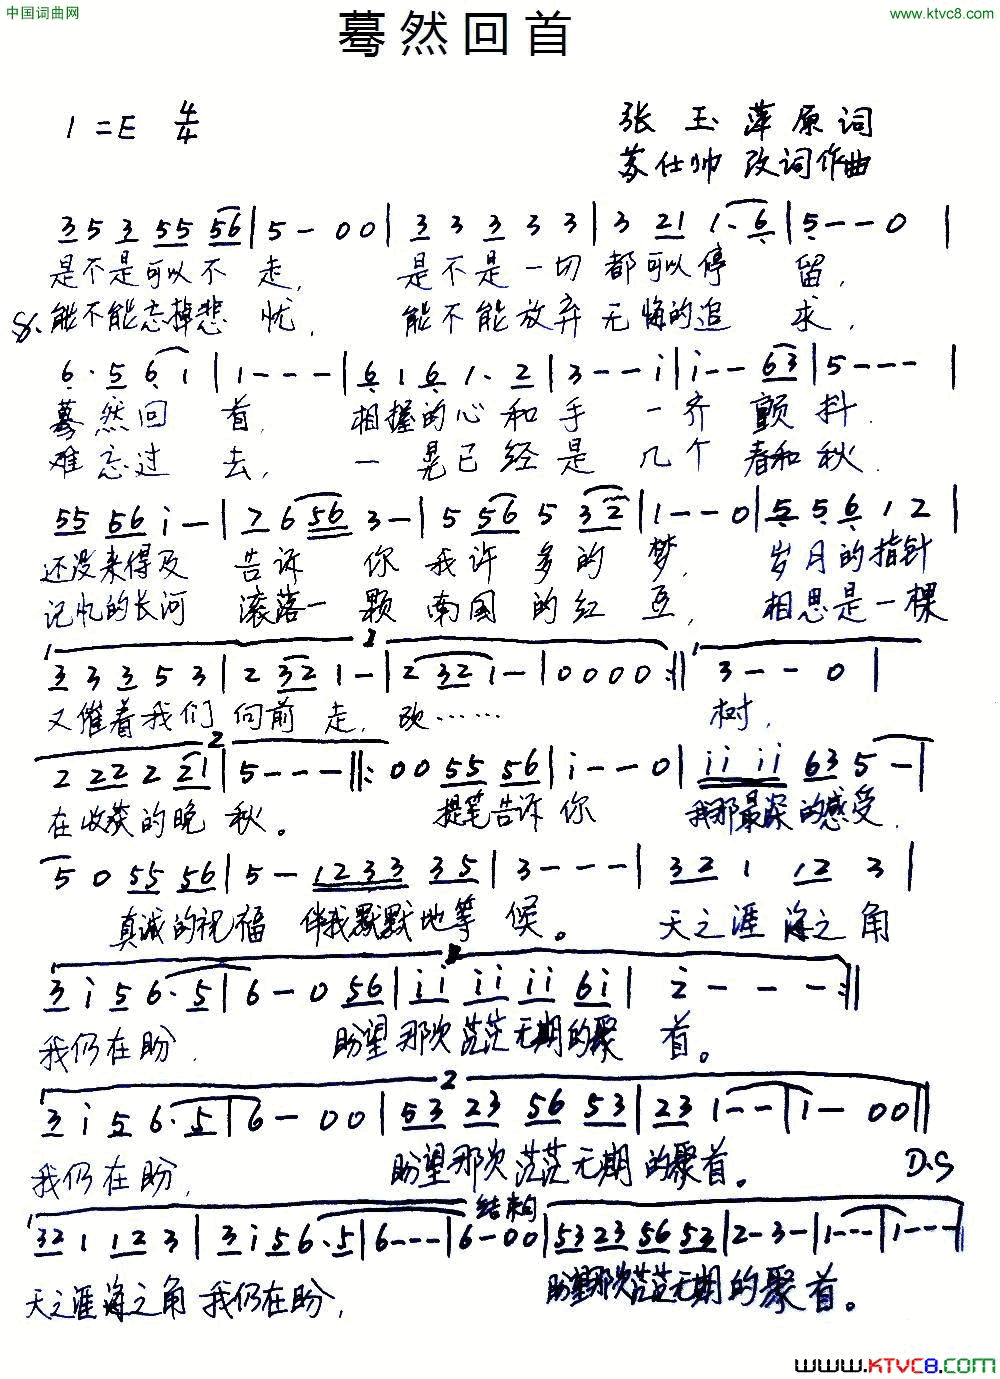 中国词曲网
www.ktvc8.com
蓦然回首
1=E 4/4
张玉萍原词
苏仕帅 改词作曲
3 5 3 55 56 | 5 - 0 0 | 3 3 3 3 3 | 3 21 1. 6 | 5 - - 0 |
是不是可以不 走, 是不是一切都可以停 留,
能不能忘掉悲 忧, 能不能放弃无悔的追 求,
6. 5 6 1 | 1 - - - | 6 1 6 1. 2 | 3 - - i | i - - 63 | 5 - - - |
蓦然回 首, 相握的心和手 一齐 颤抖.
难忘过 去, 一晃已经是 几个 春和秋.
55 56 i - | 7 6 56 3 - | 5 56 5 32 | 1 - - 0 | 5 5 6 1 2 |
还没来得及 告诉 你 我许多的 梦, 岁月的指针
记忆的长河 滚落一 颗 南国的红 豆, 相思是一棵
1 2
3 3 3 5 3 | 2 32 1 - | 2 32 1 - | 0 0 0 0 :|| 1 3 - - 0 |
又催着我们 向前 走, 改…… 树,
2
2 22 2 21 | 5 - - - ||: 0 0 55 56 | i - - 0 | ii ii 63 5 - |
在收获的晚 秋。 提笔告诉 你 我那最深的感受,
5 0 55 56 | 5 - 1233 35 | 3 - - - | 32 1 12 3 |
真诚的祝福 伴我默默地等 候。 天之涯 海之角
3 i 5 6. 5 | 6 - 0 56 | ii ii ii 6i | 2 - - - :||
我仍在盼, 盼望那次茫茫无期的聚 首。
2
3 i 5 6. 5 | 6 - 0 0 | 53 23 56 53 | 23 1 - - | 1 - 0 0 ||
我仍在盼, 盼望那次茫茫无期的聚首。 D.S
1 结束句
32 1 12 3 | 3 i 5 6. 5 | 6 - - - | 6 - 0 0 | 53 23 56 53 | 2 - 3 - | 1 - - - | 1 - - - |
天之涯海之角 我仍在盼, 盼望那次茫茫无期的聚首。
www.KTVC8.com